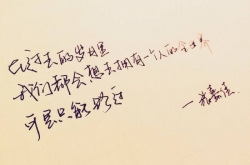 在过去的岁月里
我们都会想去拥有一个人的全世界
可是只能路过